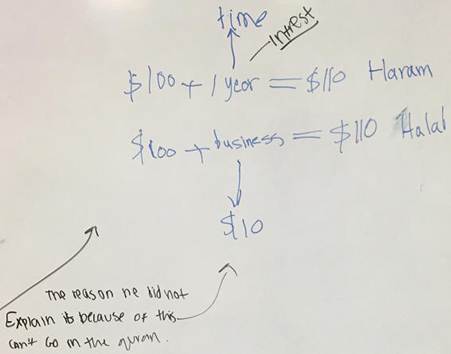 time
intrest
$100 + 1 year = $110 Haram
$100 + business = $110 Halal
$10
The reason he did not
Explain is because of this
can't Go in the quran.